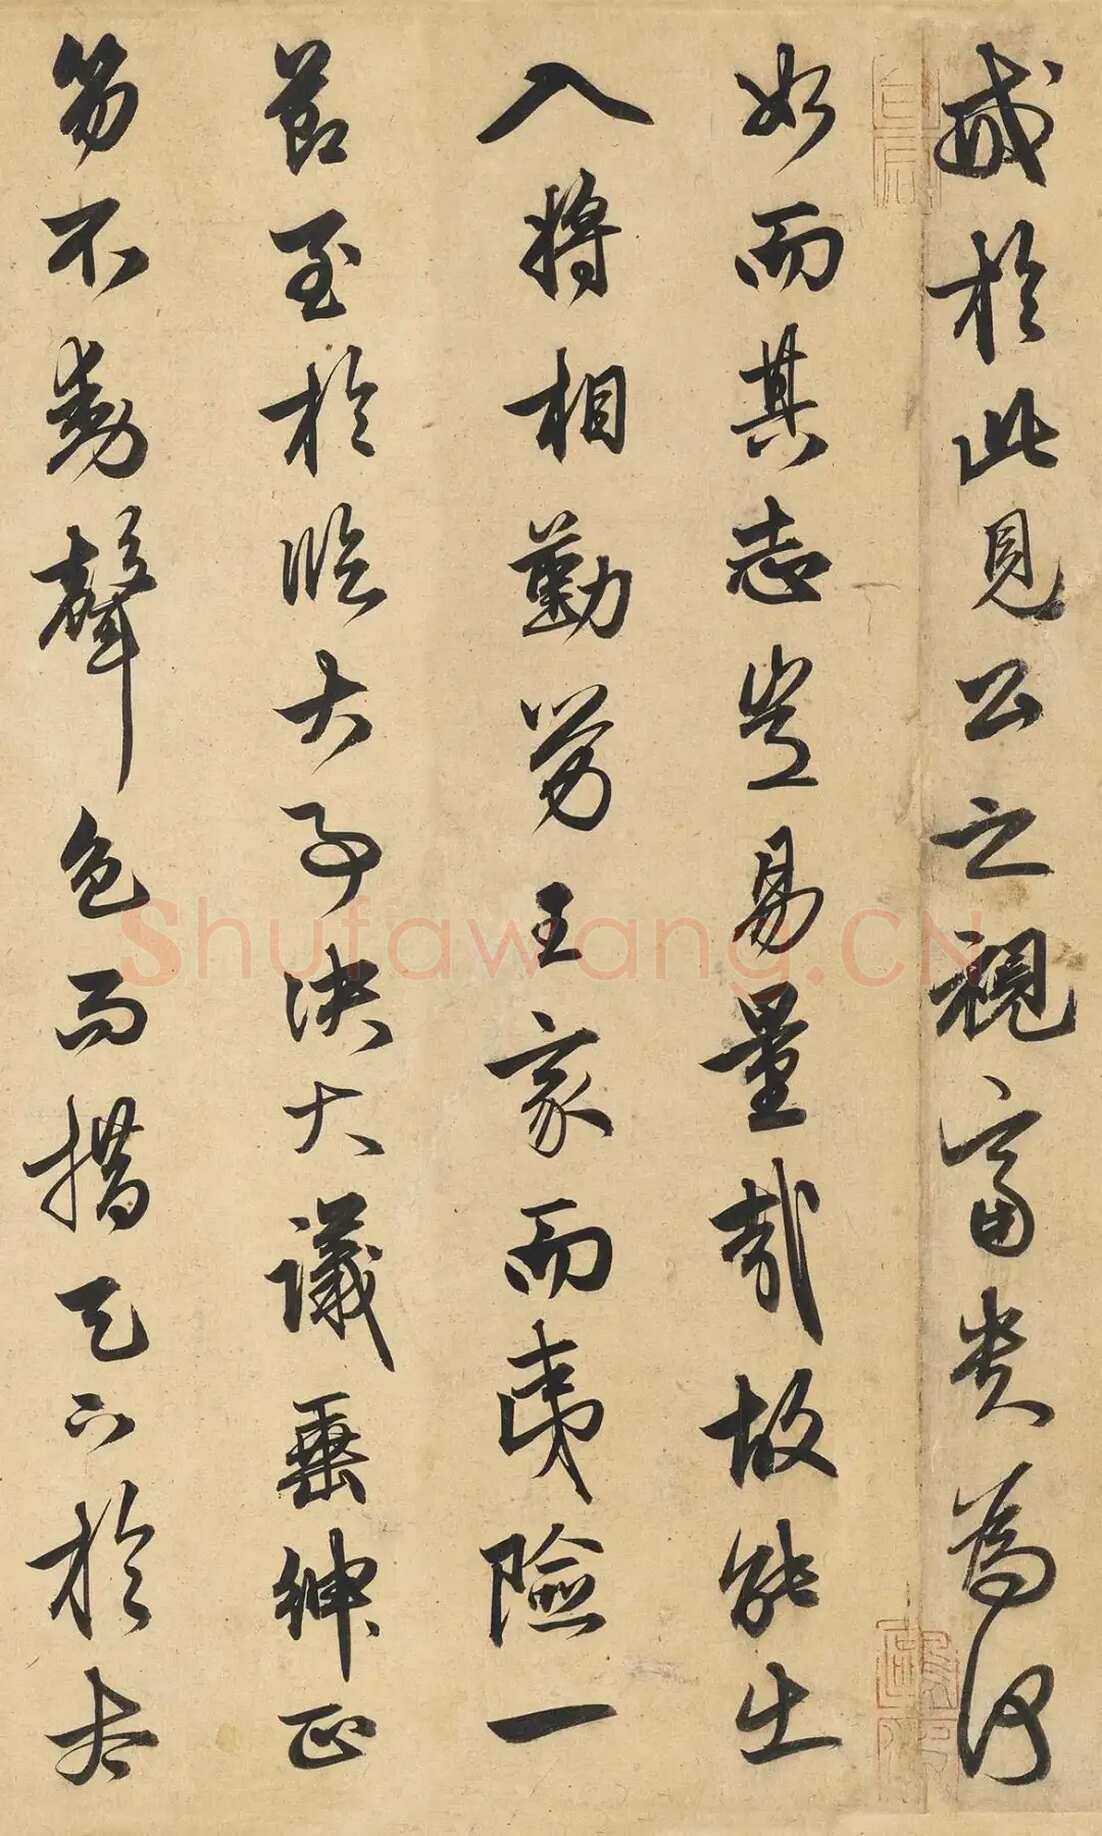 戒於此見公之視富貴為何
如而其志豈易量哉故能出
入將相勤勞王家而夷險一
節至於臨大事決大議垂紳正
笏不動聲色而措天下於太
Shufawang.CN